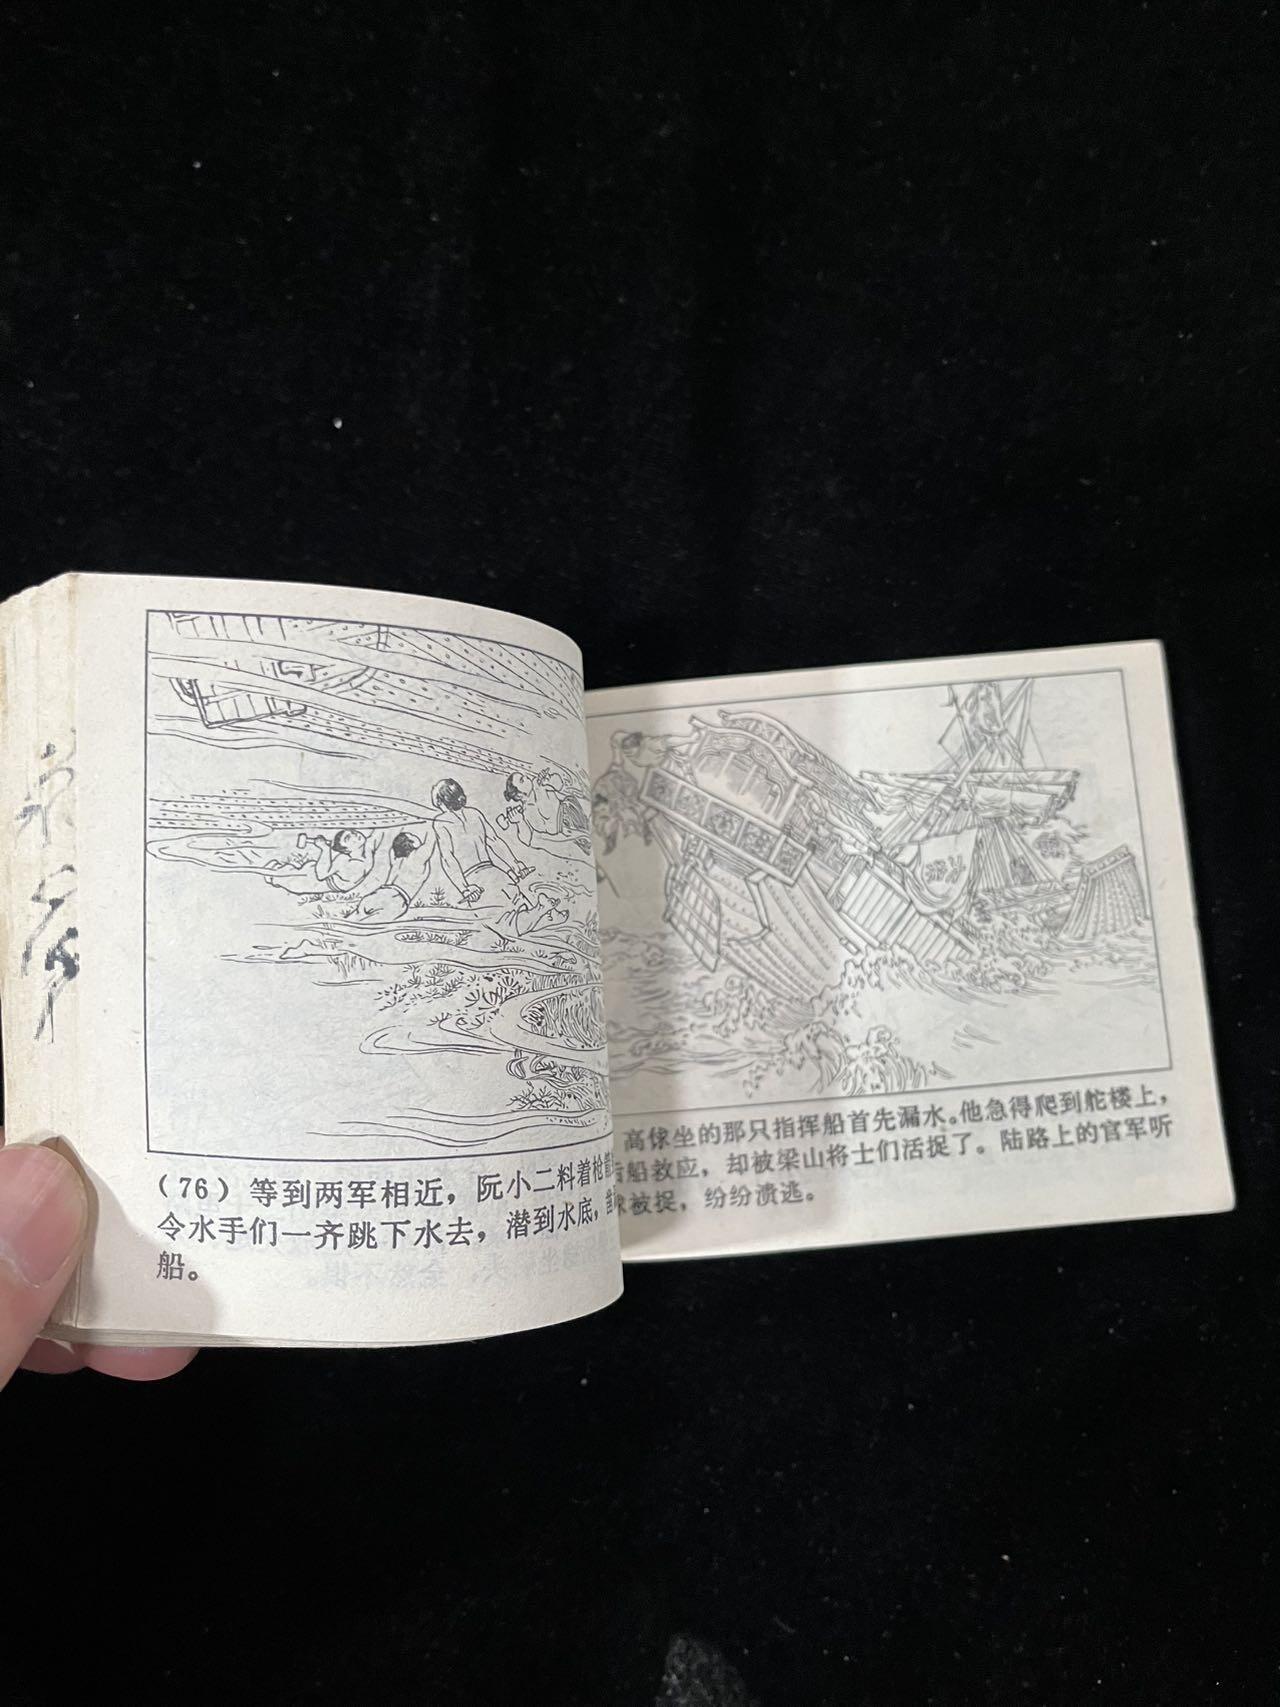 (76) 等到两军相近，阮小二料着枪
令水手们一齐跳下水去，潜到水底，
船。
高俅坐的那只指挥船首先漏水。他急得爬到舵楼上，
船救应，却被梁山将士们活捉了。陆路上的官军听
被捉，纷纷溃逃。